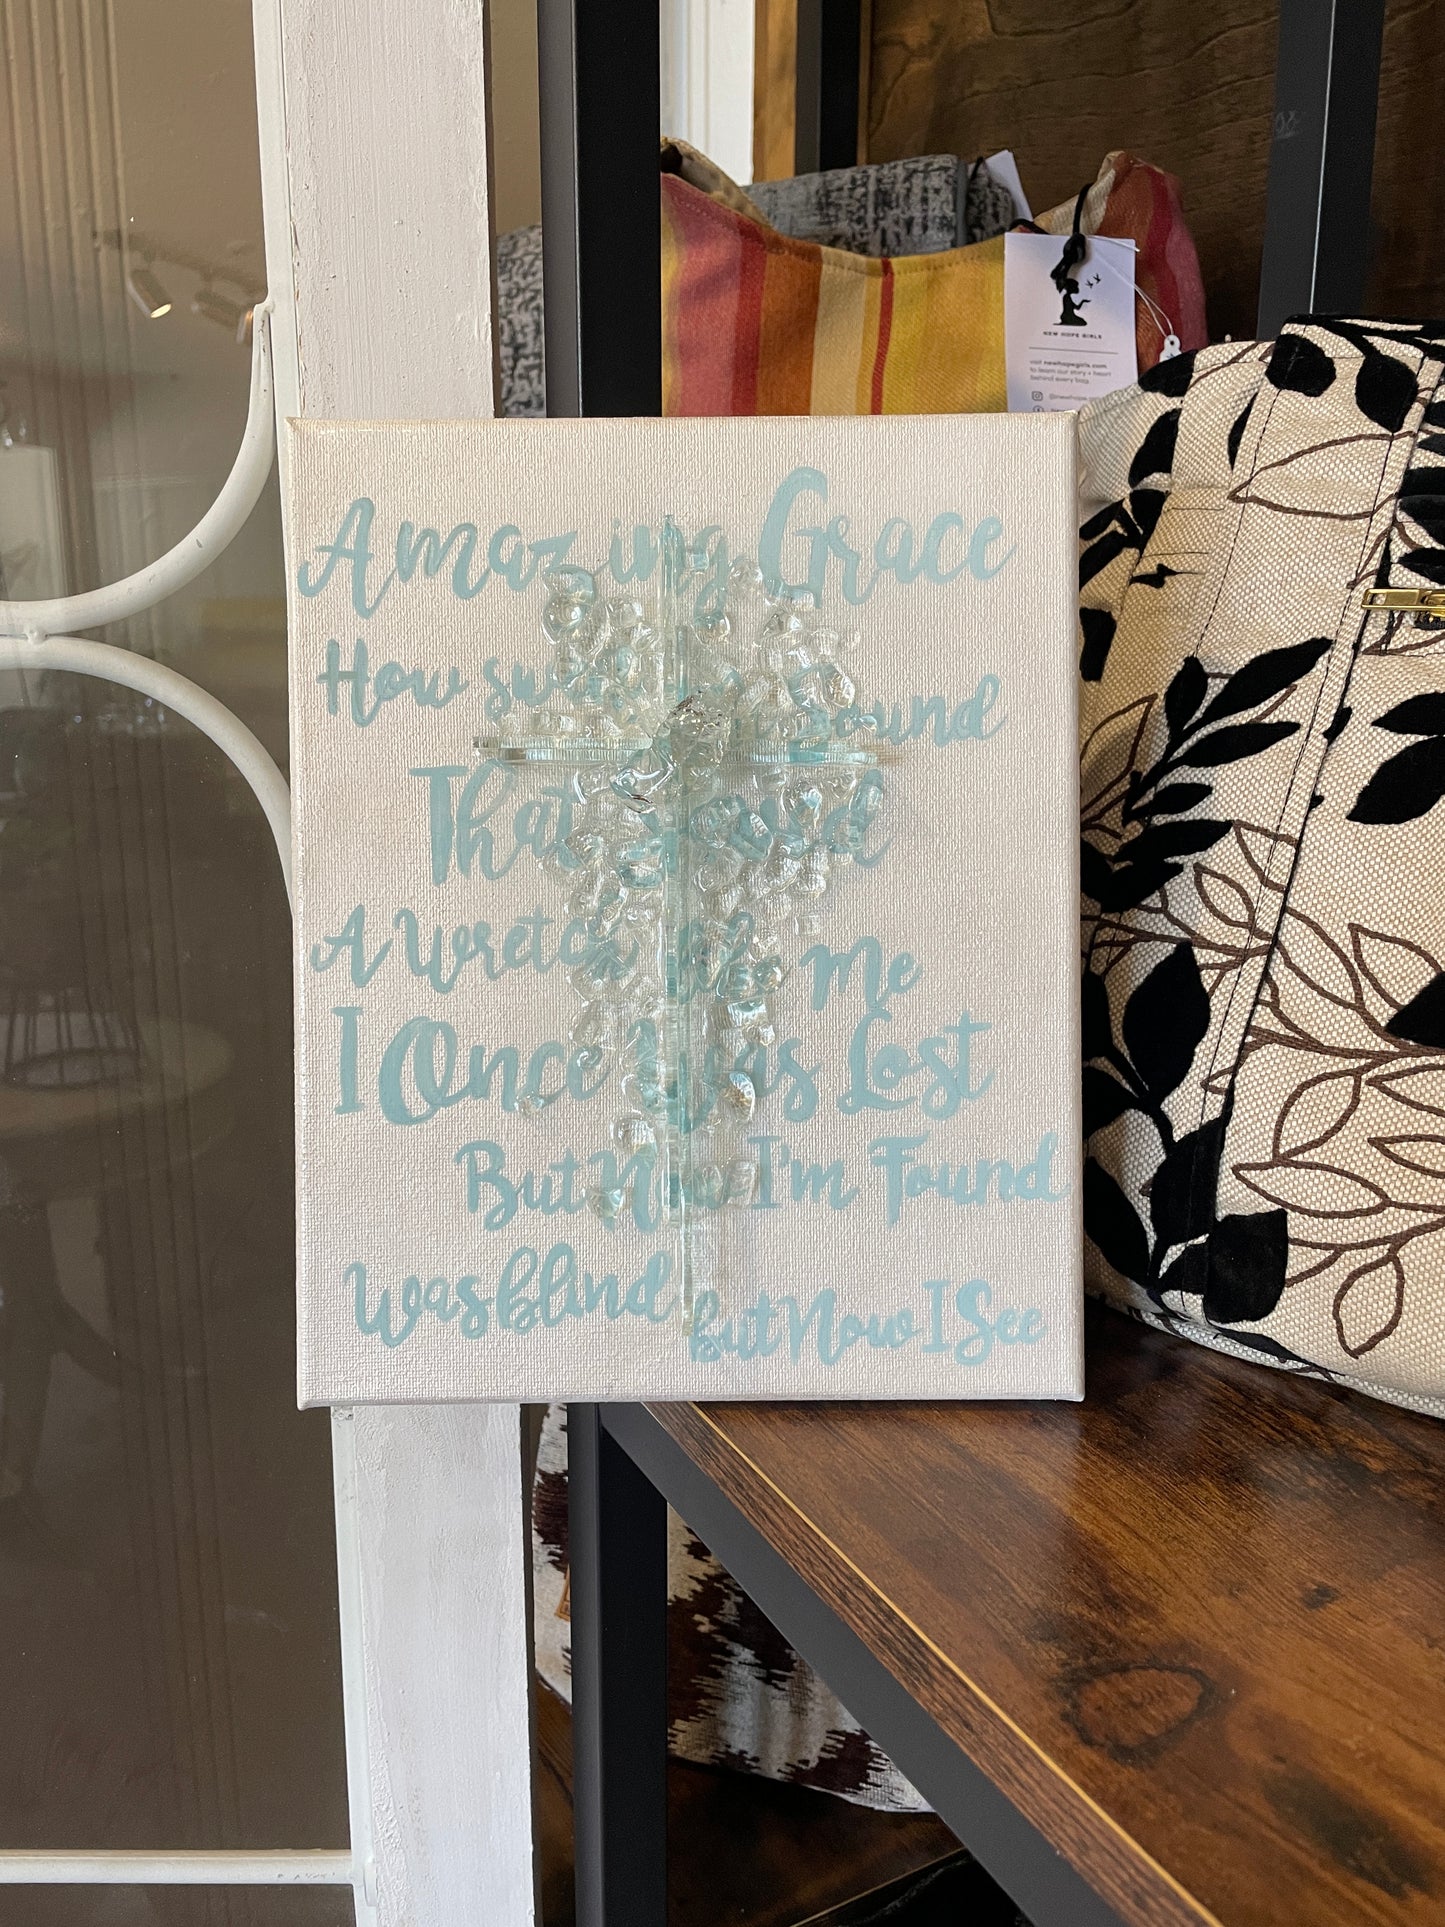 Amazing Grace
How
Sound
That
A Wretch Like Me
I Once Was Lost
But Now I'm Found
Was blind but Now I See
NEW HOPE GIRLS
visit newhopegirls.com
to learn our story + heart
behind every bag.